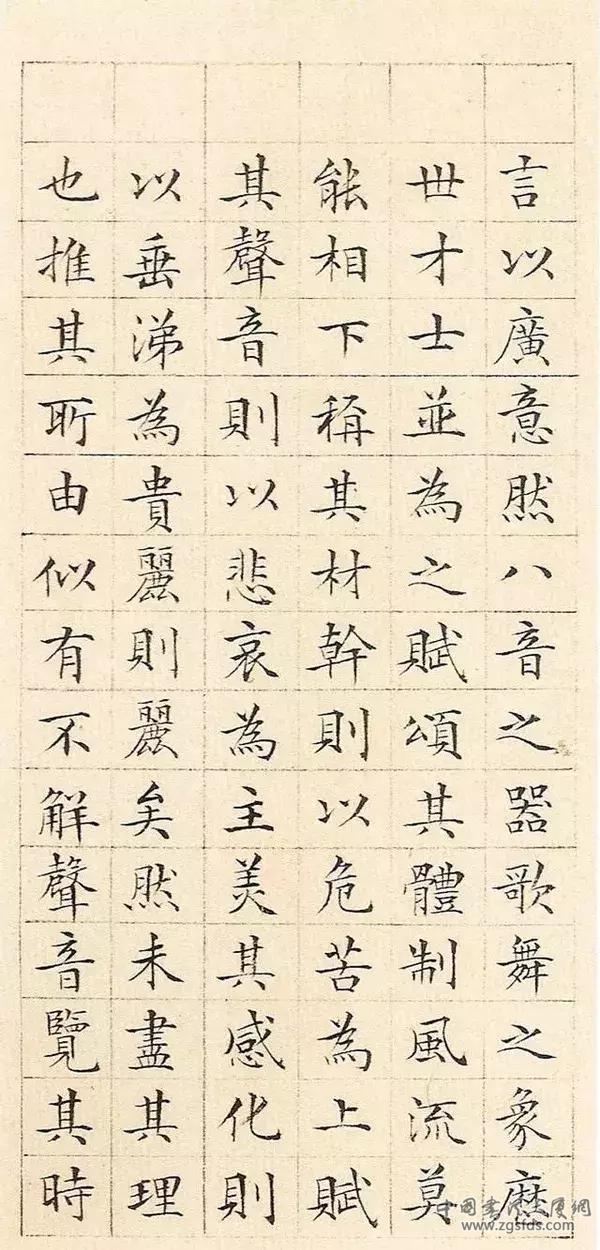 言以廣意然八音之器歌舞之象歷
世才士並為之賦頌其體制風流莫
能相下稱其材幹則以危苦為上賦
其聲音則以悲哀為主美其感化則
以垂涕為貴麗則麗矣然未盡其理
也推其所由似有不解聲音覽其時
www.zgsfds.com